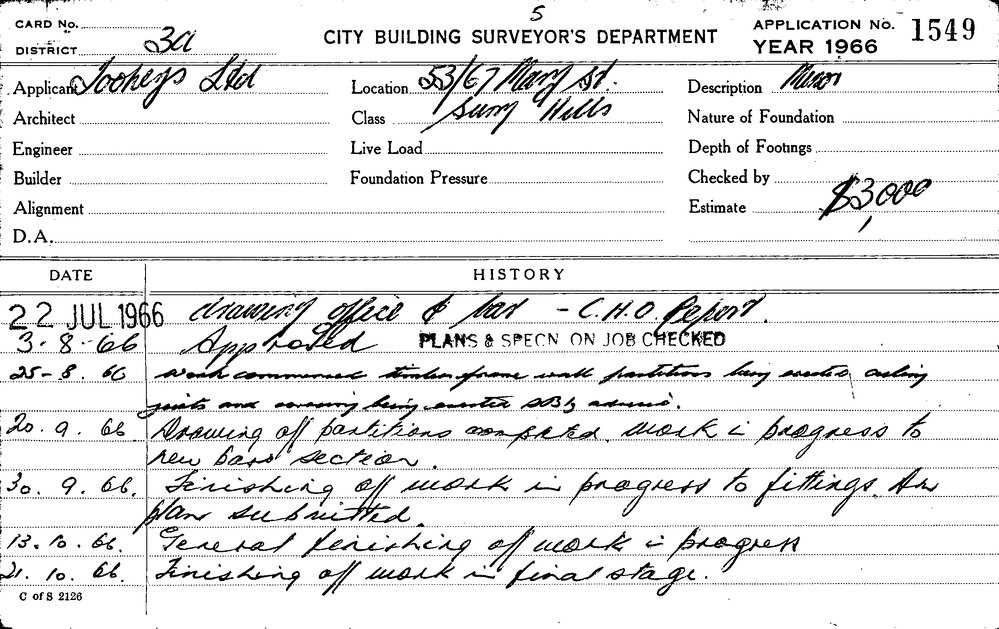 5
CARD No.
DISTRICT 3a
CITY BUILDING SURVEYOR'S DEPARTMENT
APPLICATION No. 1549
YEAR 1966
Applicant Tooheys Ltd
Location 53/67 Mary St.
Description Minor
Architect
Class Surry Hills
Nature of Foundation
Engineer
Live Load
Depth of Footings
Builder
Foundation Pressure
Checked by
Alignment
Estimate $3,000
D.A.
DATE
HISTORY
22 JUL 1966 drawing office & bar - C.H.O. Report.
3.8.66 Approved PLANS & SPECN ON JOB CHECKED
25-8.66 Work commenced timber frame wall partitions being erected, ceiling
joists and being erected advised.
20.9.66 Drawing off partitions completed. Work in progress to
new bar section.
30.9.66. Finishing off work in progress to fittings. As
plan submitted.
13.10.66. General finishing off work in progress
21.10.66. Finishing off work in final stage.
C of S 2126